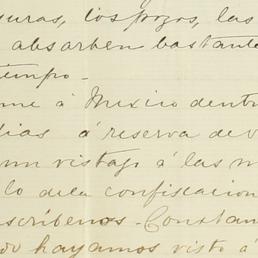 guras, los pozos, las
absorben bastante
tiempo.-
me á Mexico dentro
dias á reserva de v
un vistazo á las m
lo dela confiscacion
scríbenos.- Constan
hayamos visto á